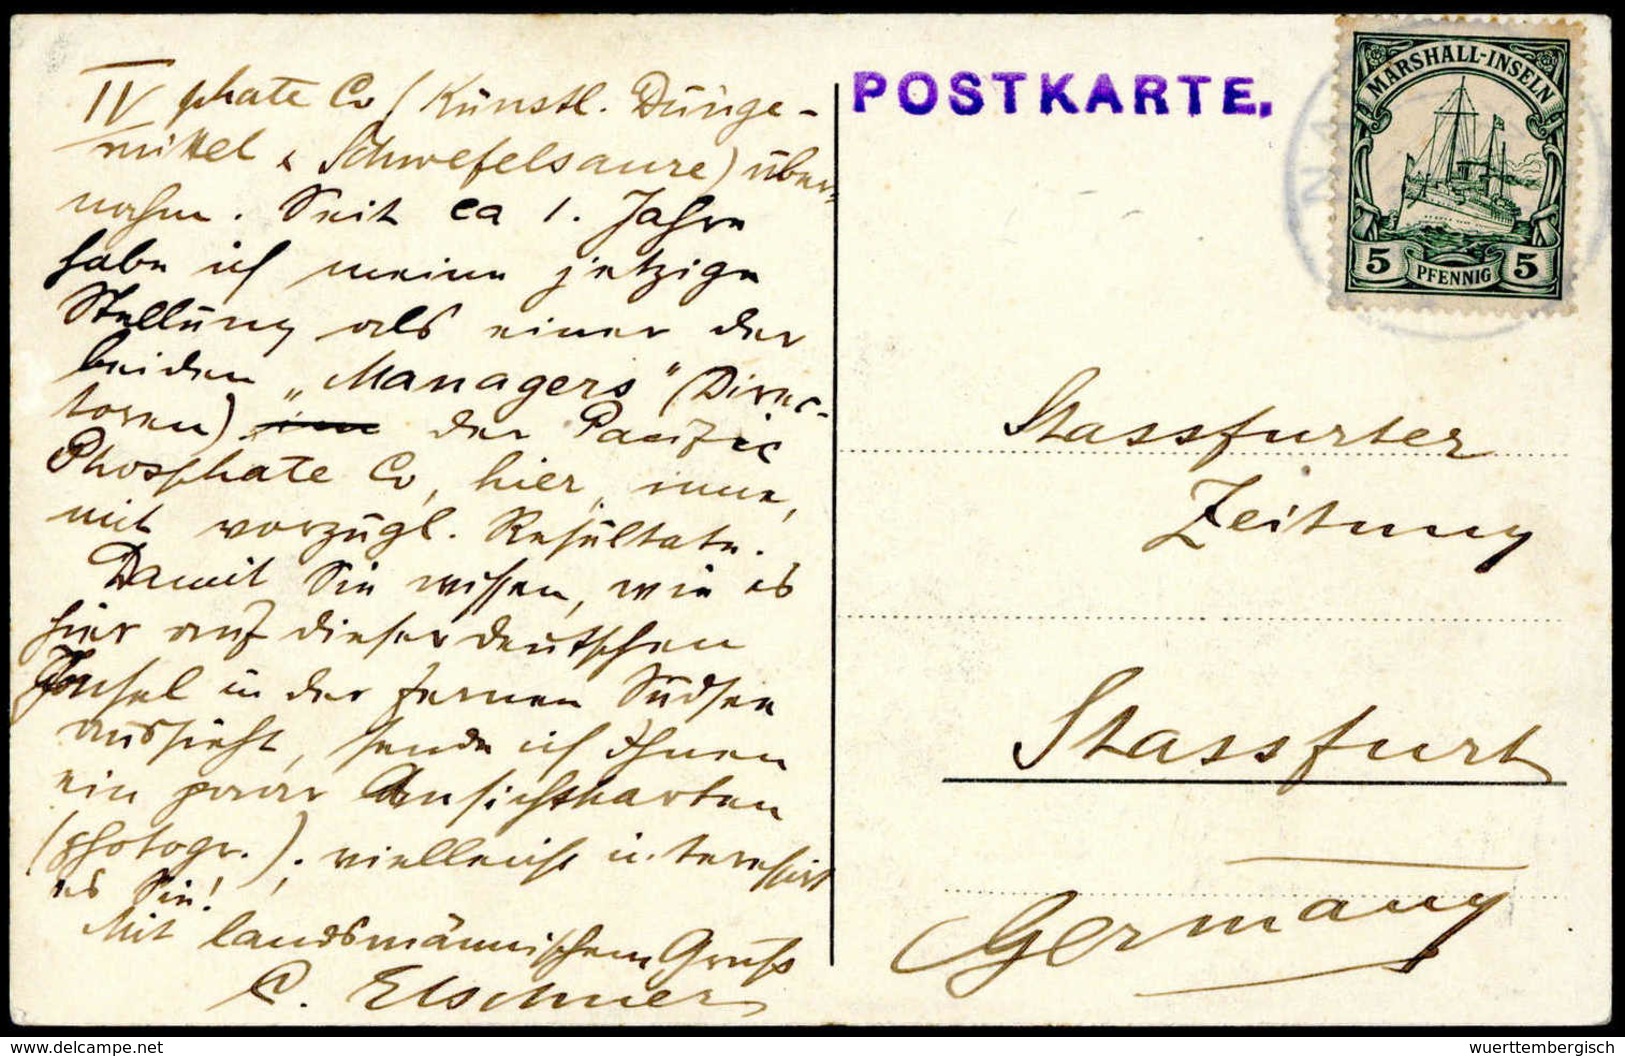 IV phate Co (Künstl. Dünge-
mittel & Schwefelsaure) über-
nahm. Seit ca 1. Jahre
habe ich meine jetzige
Stellung als einer der
beiden „Managers" (Direc-
toren) der Pacific
Phosphate Co, hier, inne,
mit vorzügl. Resultate.
Damit Sie wissen, wie es
hier auf dieser deutschen
Insel in der fernen Südsee
aussieht, sende ich Ihnen
ein paar Ansichtskarten
(photogr.); vielleicht interessirt
es Sie!
Mit landsmännischem Gruss
C. Elschner
POSTKARTE.
NA
MARSHALL-INSELN
5 PFENNIG 5
Stassfurter
Zeitung
Stassfurt
Germany
delcampe.net
wuerttembergisch